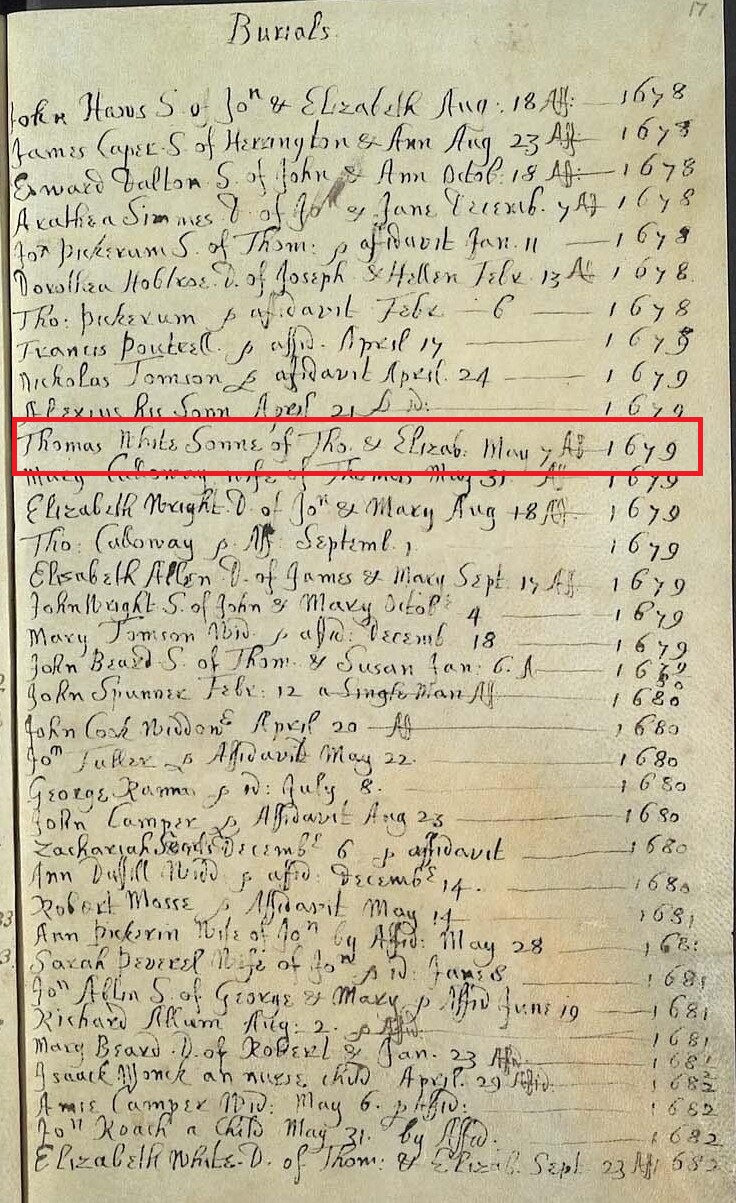 17
Burials
John Haws S. of Jon & Elizabeth Aug: 18 Aff: 1678
James Caper S. of Herrington & Ann Aug 23 Aff 1678
Edward Dalton S. of John & Ann Octob: 18 Aff: 1678
Arathea Simmes D. of Jon & Jane Decemb. 7 Aff 1678
Jon Pickerum S. of Thom: p affidavit Jan. 11 1678
Dorothea D. of Joseph & Hellen Febr. 13 Aff 1678
Tho: Pickerum p affidavit Febr 6 1678
Francis Poutrell p affid. April 17 1679
Nicholas Tomson p affidavit April. 24 1679
Alexius his Sonn April 21 p id: 1679
Thomas White Sonne of Tho. & Elizab: May 7 Aff 1679
Mary Calloway Wife of Thomas May 31. Aff 1679
Elizabeth Wright D. of Jon & Mary Aug 18 Aff. 1679
Tho: Calloway p Aff: Septemb. 1 1679
Elisabeth Allen D. of James & Mary Sept. 17 Aff 1679
John Wright S. of John & Mary Octobr 4 1679
Mary Tomson Wid. p affid: Decemb 18 1679
John Beard S. of Thom. & Susan Jan: 6. A
John Spunner Febr: 12 a Single Man Aff 1680
John Cook April 20 Aff 1680
Jon Fuller p Affidavit May 22. 1680
George p id: July 8. 1680
John Camper p Affidavit Aug 23 1680
Zachariah Decembr 6 p affidavit 1680
Ann Duffill Widd p affid: Decembr 14. 1680
Robert Mosse p Affidavit May 14 1681
Ann Pickerin Wife of Jon by Affid: May 28 1681
Sarah Peverel Wife of Jon p id: June 8 1681
Jon Allin S. of George & Mary p Affid June 19 1681
Richard Allum Aug: 2. p Affid: 1681
Mary Beard D. of Robert & Jan. 23 Affid
Isaack Monck an nurse child April. 29 Affid: 1682
Amie Camper Wid: May 6. p Affid: 1682
Jon Roach a Child May 31. by Affid. 1682
Elizabeth White D. of Thom: & Elisab. Sept 23 Aff 1682